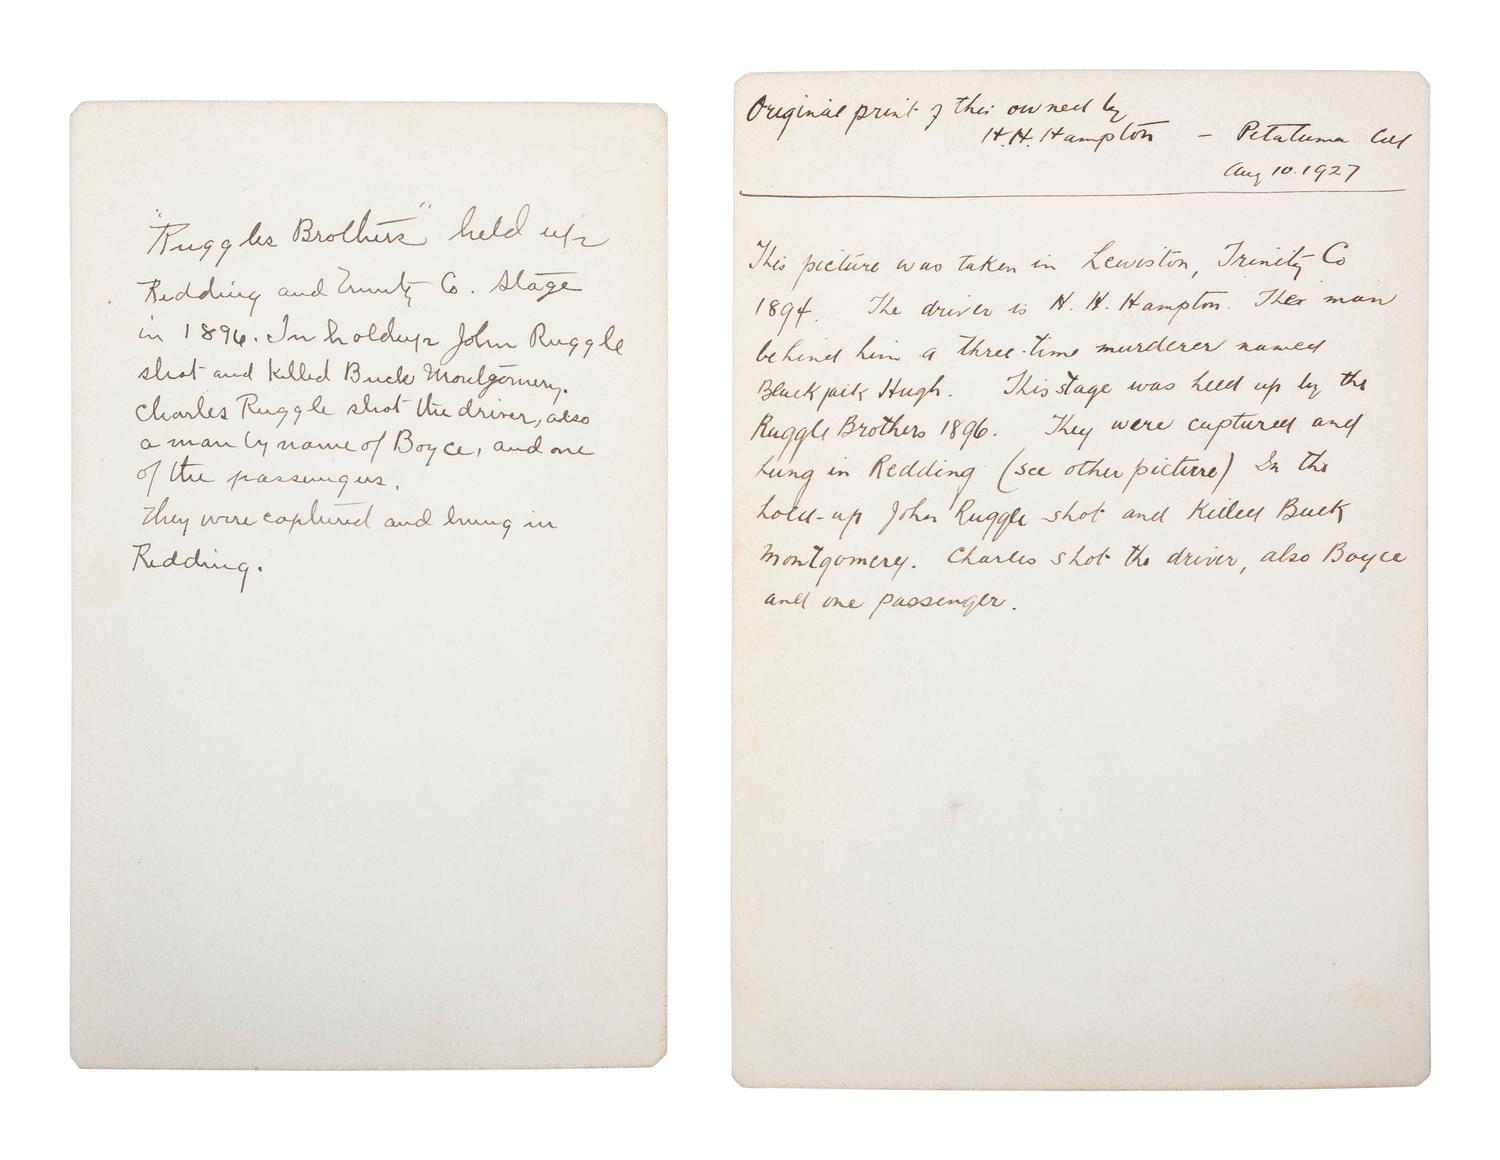 "Ruggles Brothers" held up
Redding and Trinity Co. Stage
in 1896. In holdup John Ruggle
shot and killed Buck Montgomery.
Charles Ruggle shot the driver, also
a man by name of Boyce, and one
of the passengers.
They were captured and hung in
Redding.
Original print of this owned by
H.H. Hampton – Petaluma Cal
Aug 10. 1927
This picture was taken in Lewiston, Trinity Co
1894. The driver is H. H. Hampton. The man
behind him a three-time murderer named
Black jack Hugh. This stage was held up by the
Ruggle Brothers 1896. They were captured and
hung in Redding (see other picture) In the
hold-up John Ruggle shot and Killed Buck
Montgomery. Charles shot the driver, also Boyce
and one passenger.